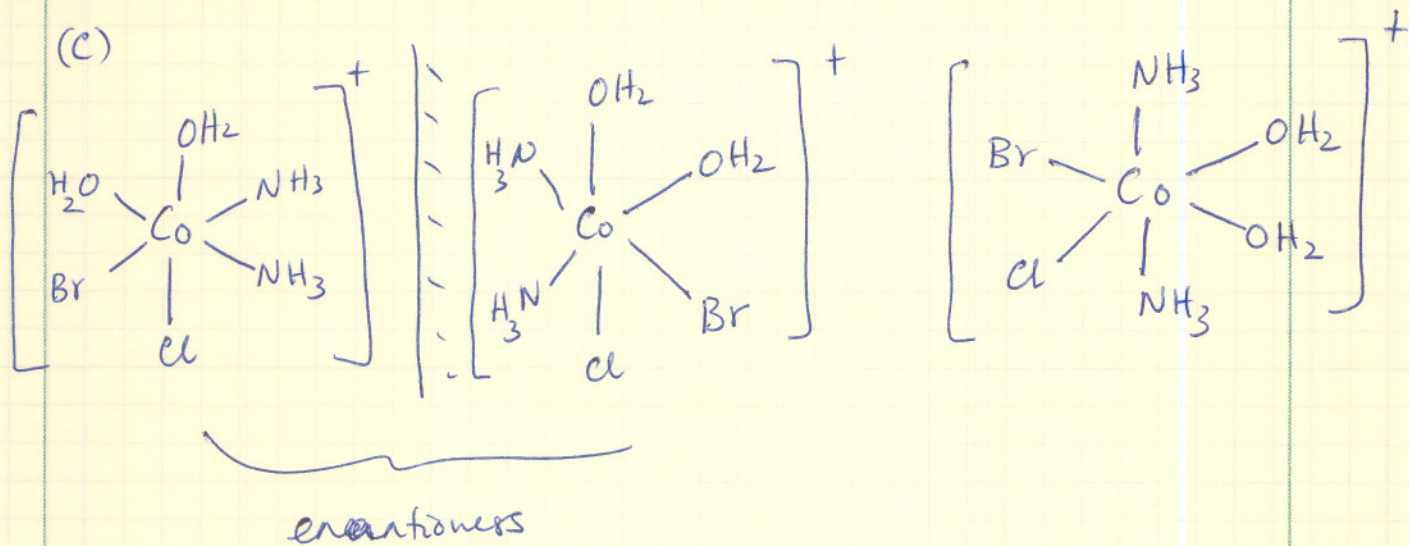 (C)
[ OH2 H2O NH3 Co Br NH3 Cl ]+
[ OH2 H3N OH2 Co H3N Br Cl ]+
[ NH3 Br OH2 Co Cl OH2 NH3 ]+
enantiomers